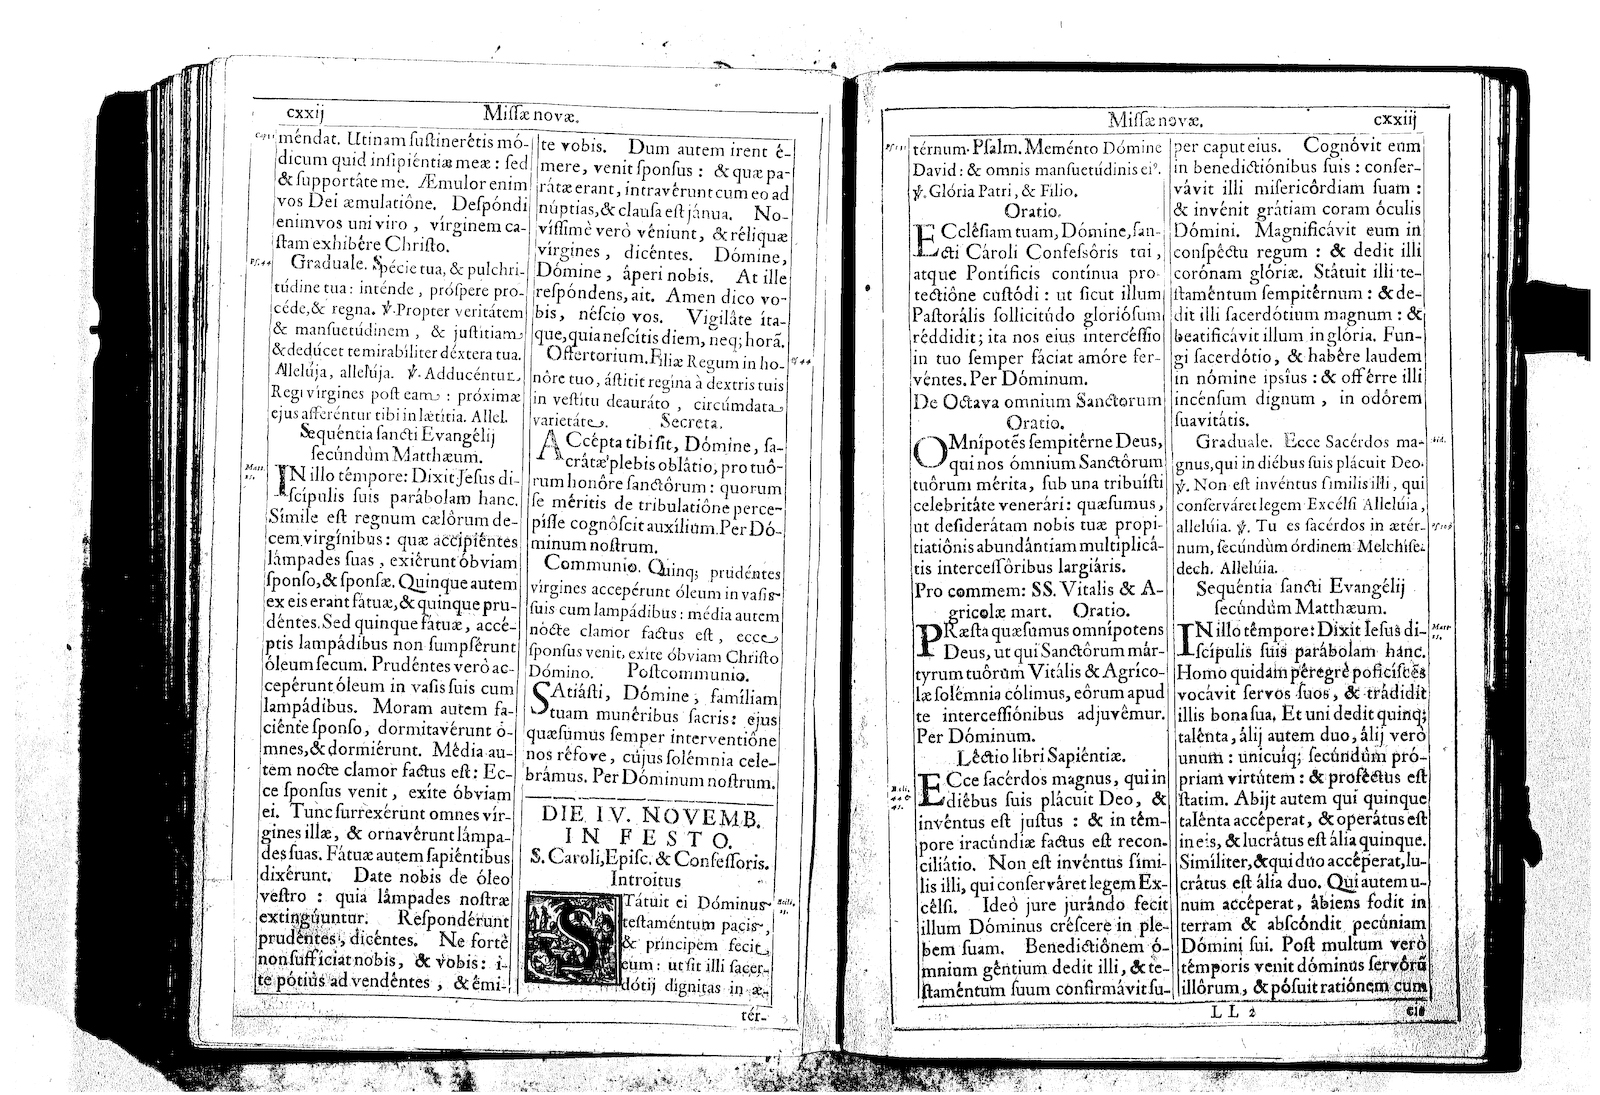 cxxij
Missæ novæ.
méndat. Utinam sustinerétis mó-
dicum quid insipiéntiæ meæ : sed
& supportáte me. Æmulor enim
vos Dei æmulatióne. Despóndi
enim vos uni viro , vírginem ca-
stam exhibére Christo.
Ps. 44
Graduale. Spécie tua, & pulchri-
túdine tua: inténde , próspere pro-
céde, & regna. ℣. Propter veritátem
& mansuetúdinem , & justítiam
& dedúcet te mirabíliter déxtera tua.
Allelúja, allelúja. ℣. Adducéntur
Regi vírgines post eam : próximæ
ejus afferéntur tibi in lætítia. Allel.
Sequéntia sancti Evangélij
secúndùm Matthæum.
Matt.
25.
IN illo témpore: Dixit Jesus di-
scípulis suis parábolam hanc.
Símile est regnum cælórum de-
cem virgínibus : quæ accipiéntes
lámpades suas , exiérunt óbviam
sponso, & sponsæ. Quinque autem
ex eis erant fátuæ, & quinque pru-
déntes. Sed quinque fátuæ, accé-
ptis lampádibus non sumpsérunt
óleum secum. Prudéntes verò ac-
cepérunt óleum in vasis suis cum
lampádibus. Moram autem fa-
ciénte sponso, dormitavérunt ó-
mnes, & dormiérunt. Média au-
tem nocte clamor factus est: Ec-
ce sponsus venit , exíte óbviam
ei. Tunc surrexérunt omnes vír-
gines illæ, & ornavérunt lámpa-
des suas. Fátuæ autem sapiéntibus
dixérunt. Date nobis de óleo
vestro : quia lámpades nostræ
extinguuntur. Respondérunt
prudéntes, dicéntes. Ne fortè
non sufficiat nobis, & vobis: i-
te pótiùs ad vendéntes , & émi-
te vobis. Dum autem irent é-
mere, venit sponsus : & quæ pa-
rátæ erant, intravérunt cum eo ad
núptias, & clausa est jánua. No-
víssimè verò véniunt, & réliquæ
vírgines , dicéntes. Dómine,
Dómine , áperi nobis. At ille
respóndens, ait. Amen dico vo-
bis, néscio vos. Vigiláte íta-
que, quia nescítis diem, neq; horã.
Offertorium. Filiæ Regum in ho-
nóre tuo, ástitit regína à dextris tuis
in vestítu deauráto , circúmdata
varietáte. Secreta.
Ps. 44
ACcépta tibi sit, Dómine, sa-
crátæ plebis oblátio, pro tuó-
rum honóre sanctórum : quorum
se méritis de tribulatióne perce-
písse cognóscit auxílium. Per Dó-
minum nostrum.
Communio. Quinq; prudéntes
vírgines accepérunt óleum in vasis
suis cum lampádibus : média autem
nócte clamor factus est , ecce
sponsus venit, exíte óbviam Christo
Dómino. Postcommunio.
SAtiásti, Dómine, famíliam
tuam munéribus sacris: ejus
quæsumus semper interventióne
nos réfove, cújus solémnia cele-
brámus. Per Dóminum nostrum.
DIE IV. NOVEMB.
IN FESTO.
S. Caroli, Episc. & Confessoris.
Introitus
STátuit ei Dóminus
testaméntum pacis,
& príncipem fecit
eum : ut sit illi sacer-
dótij dignitas in æ-
tér-
Missæ novæ.
cxxiij
térnum. Psalm. Meménto Dómine
David : & omnis mansuetúdinis ei⁹.
℣. Glória Patri, & Filio.
Oratio.
ECclésiam tuam, Dómine, san-
cti Cároli Confessóris tui,
atque Pontíficis contínua pro-
tectióne custódi : ut sicut illum
Pastorális sollicitúdo gloriósum
réddidit ; ita nos eius intercéssio
in tuo semper fáciat amóre fer-
véntes. Per Dóminum.
De Octava omnium Sanctorum
Oratio.
OMnípotẽs sempitérne Deus,
qui nos ómnium Sanctórum
tuórum mérita, sub una tribuísti
celebritáte venerári : quæsumus,
ut desiderátam nobis tuæ propi-
tiatiónis abundántiam multiplicá-
tis intercessóribus largiáris.
Pro commem: SS. Vitalis & A-
gricolæ mart. Oratio.
PRæsta quæsumus omnípotens
Deus, ut qui Sanctórum már-
tyrum tuórum Vitális & Agríco-
læ solémnia cólimus, eórum apud
te intercessiónibus adjuvémur.
Per Dóminum.
Léctio libri Sapiéntiæ.
ECce sacérdos magnus, qui in
diébus suis plácuit Deo, &
invéntus est justus : & in tém-
pore iracúndiæ factus est recon-
ciliátio. Non est invéntus sími-
lis illi, qui conserváret legem Ex-
célsi. Ideò jure jurándo fecit
illum Dóminus créscere in ple-
bem suam. Benedictiónem ó-
mnium géntium dedit illi, & te-
staméntum suum confirmávit su-
per caput eius. Cognóvit eum
in benedictiónibus suis : conser-
vávit illi misericórdiam suam :
& invénit grátiam coram óculis
Dómini. Magnificávit eum in
conspéctu regum : & dedit illi
corónam glóriæ. Státuit illi te-
staméntum sempitérnum : & de-
dit illi sacerdótium magnum : &
beatificávit illum in glória. Fun-
gi sacerdótio, & habére laudem
in nómine ipsíus : & offérre illi
incénsum dignum , in odórem
suavitátis.
Graduale. Ecce Sacérdos ma-
gnus, qui in diébus suis plácuit Deo.
℣. Non est invéntus símilis illi, qui
conserváret legem Excélsi Allelúia,
allelúia. ℣. Tu es sacérdos in ætér-
num, secúndùm órdinem Melchíse-
dech. Allelúia.
Sequéntia sancti Evangélij
secúndùm Matthæum.
Matt
25.
IN illo témpore: Dixit Iesus di-
scípulis suis parábolam hanc.
Homo quidam péregrè poficiscẽs
vocávit servos suos , & trádidit
illis bona sua. Et uni dedit quinq;
talénta, álij autem duo, álij verò
unum : unicuiq; secúndùm pró-
priam virtútem : & proféctus est
statim. Abijt autem qui quinque
talénta accéperat, & operátus est
in eis, & lucrátus est ália quinque.
Simíliter, & qui duo accéperat, lu-
crátus est ália duo. Qui autem u-
num accéperat, ábiens fodit in
terram & abscóndit pecúniam
Dómini sui. Post multum verò
témporis venit dóminus servórũ
illórum, & pósuit ratiónem cum
LL 2
eis